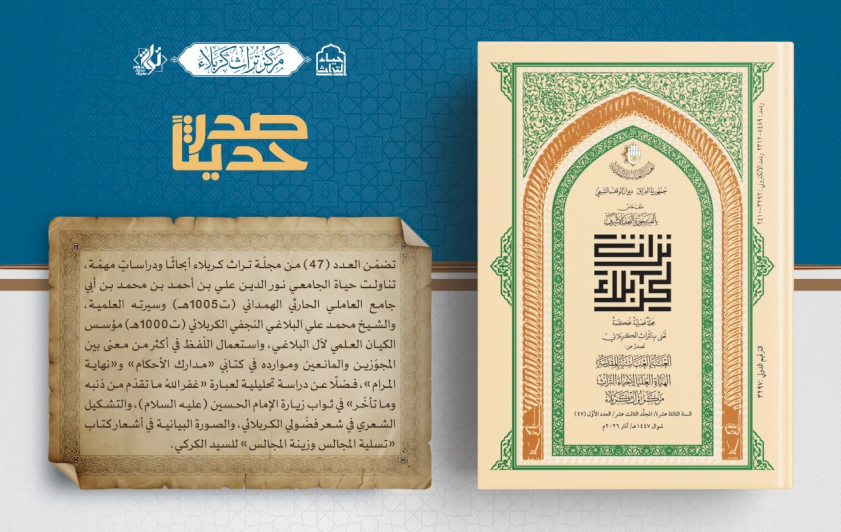 إحياء التراث
مركز تراث كربلاء
صدر
حديثاً
تضمّن العدد (47) من مجلّة تراث كربلاء أبحاثًا ودراساتٍ مهمّة،
تناولت حياة الجامعي نور الدين علي بن أحمد بن محمد بن أبي
جامع العاملي الحارثي الهمداني (ت1005هـ) وسيرته العلمية،
والشيخ محمد علي البلاغي النجفي الكربلائي (ت1000هـ) مؤسس
الكيان العلمي لآل البلاغي، واستعمال اللّفظ في أكثر من معنى بين
المجوّزين والمانعين وموارده في كتابَي «مدارك الأحكام» و«نهاية
المرام»، فضلًا عن دراسة تحليلية لعبارة «غفر اللهُ ما تقدّم من ذنبه
وما تأخّر» في ثواب زيارة الإمام الحسين (عليه السلام)، والتشكيل
الشعري في شعر فضّولي الكربلائي، والصورة البيانية في أشعار كتاب
«تسلية المجالس وزينة المجالس» للسيد الكركي.
جمهورية العراق ديوان الوقف الشيعي
تراث
كربلاء
مجلة فصلية محكمة
تعنى بالتراث الكربلائي
تصدر عن:
العتبة العباسية المقدسة
الهيأة العليا لإحياء التراث
مركز تراث كربلاء
السنة الثالثة عشرة/ المجلد الثالث عشر/ العدد الأول (٤٧)
شوال ١٤٤٧هـ/ آذار ٢٠٢٦م
ردمد: ٥٤٨٩-٢٣١٢
ردمد الالكتروني: ٣٢٩٢-٢٤١٠
الترقيم الدولي: ٣٢٩٧